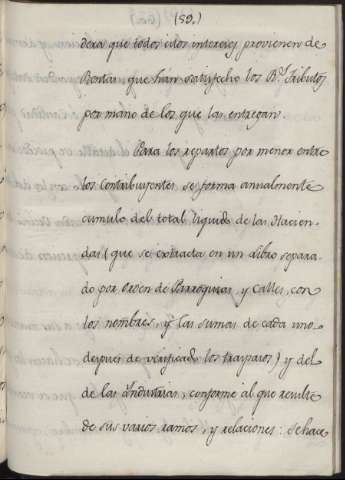 (59.)
dera que todos estos intereses provienen de
Rentas, que han satisfecho los R.s Tributos
por mano de los que las entregan
Para los repartos por menor entre
los Contribuyentes se forma anualmente
cumulo del total liquido de las Hacien-
das (que se extracta en un Libro separa-
do por Orden de Parroquias, y Calles, con
los nombres, y las sumas de cada uno
despues de verificado los traspasos) y del
de las Yndustrias, conforme al que resulte
de sus varios ramos, y relaciones: Se hace